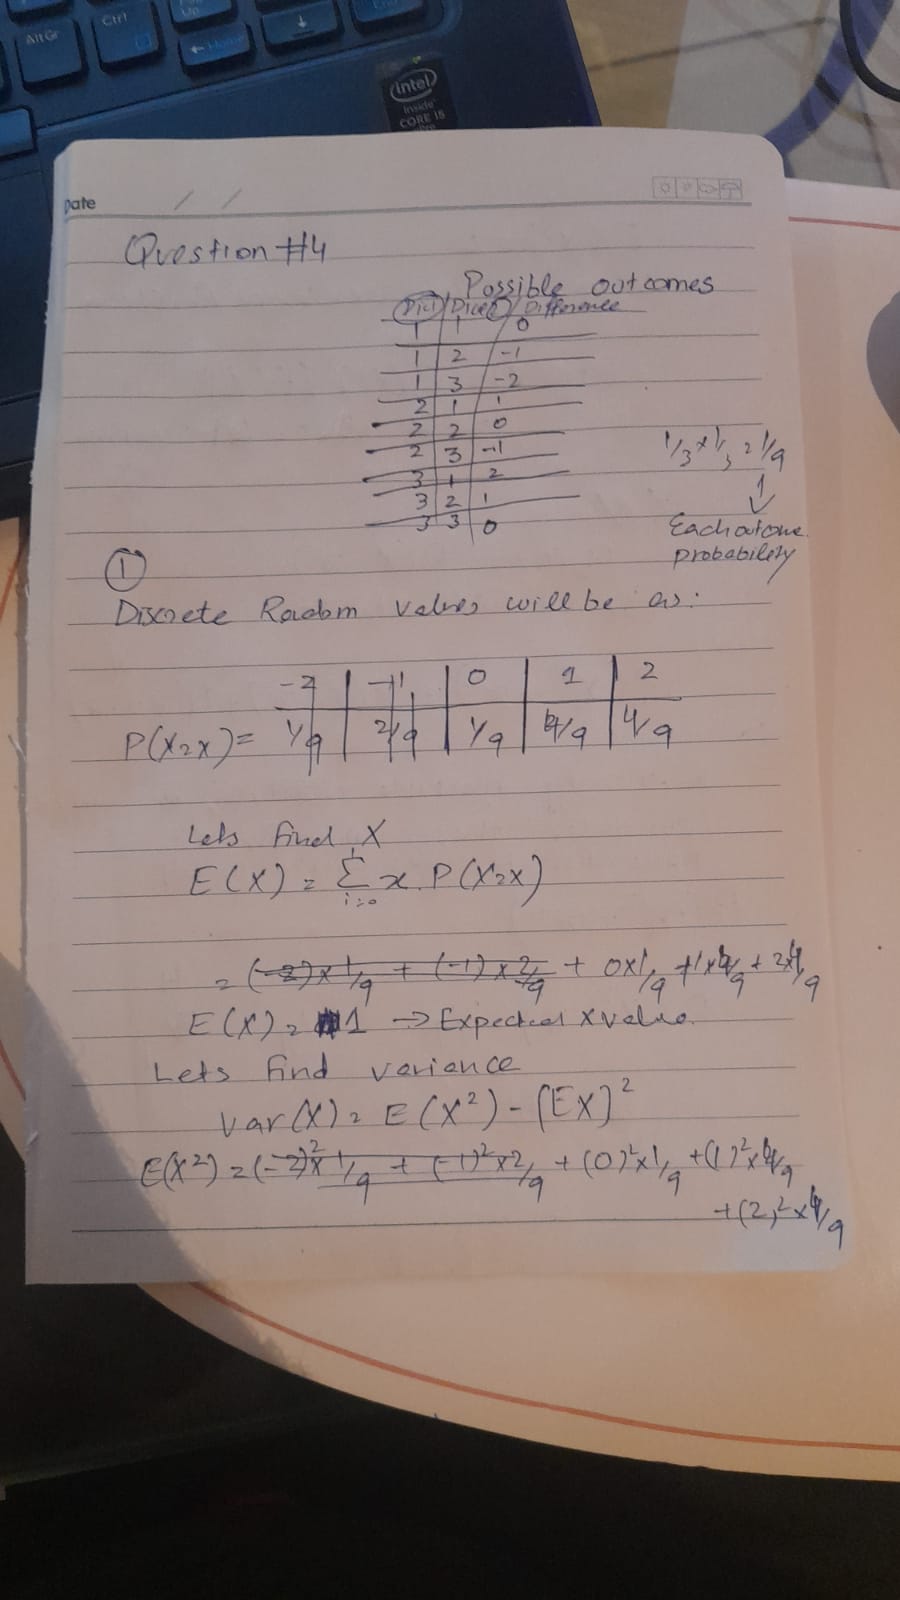 Alt Gr
Ctrl
Home
End
intel
inside
CORE i5
Date / /
Question #4
Possible outcomes
Dice1 Dice2 Difference
1 1 0
1 2 -1
1 3 -2
2 1 1
2 2 0
2 3 -1
3 1 2
3 2 1
3 3 0
1/3 x 1/3 = 1/9
Each outcome
probability
1
Discrete Radom Values will be as:
-2 -1 0 1 2
P(X=x)= 1/9 2/9 1/9 4/9 4/9
Lets find X
E(X) = Σ x. P(X=x)
i=0
= (-2)x1/9 + (-1)x2/9 + 0x1/9 +1x4/9 + 2x4/9
E(X) = 1 → Expected X value.
Lets find varience
Var(X) = E(X²) - [EX]²
E(X²) = (-2)²x1/9 + (-1)²x2/9 + (0)²x1/9 +(1)²x4/9
+(2)²x4/9